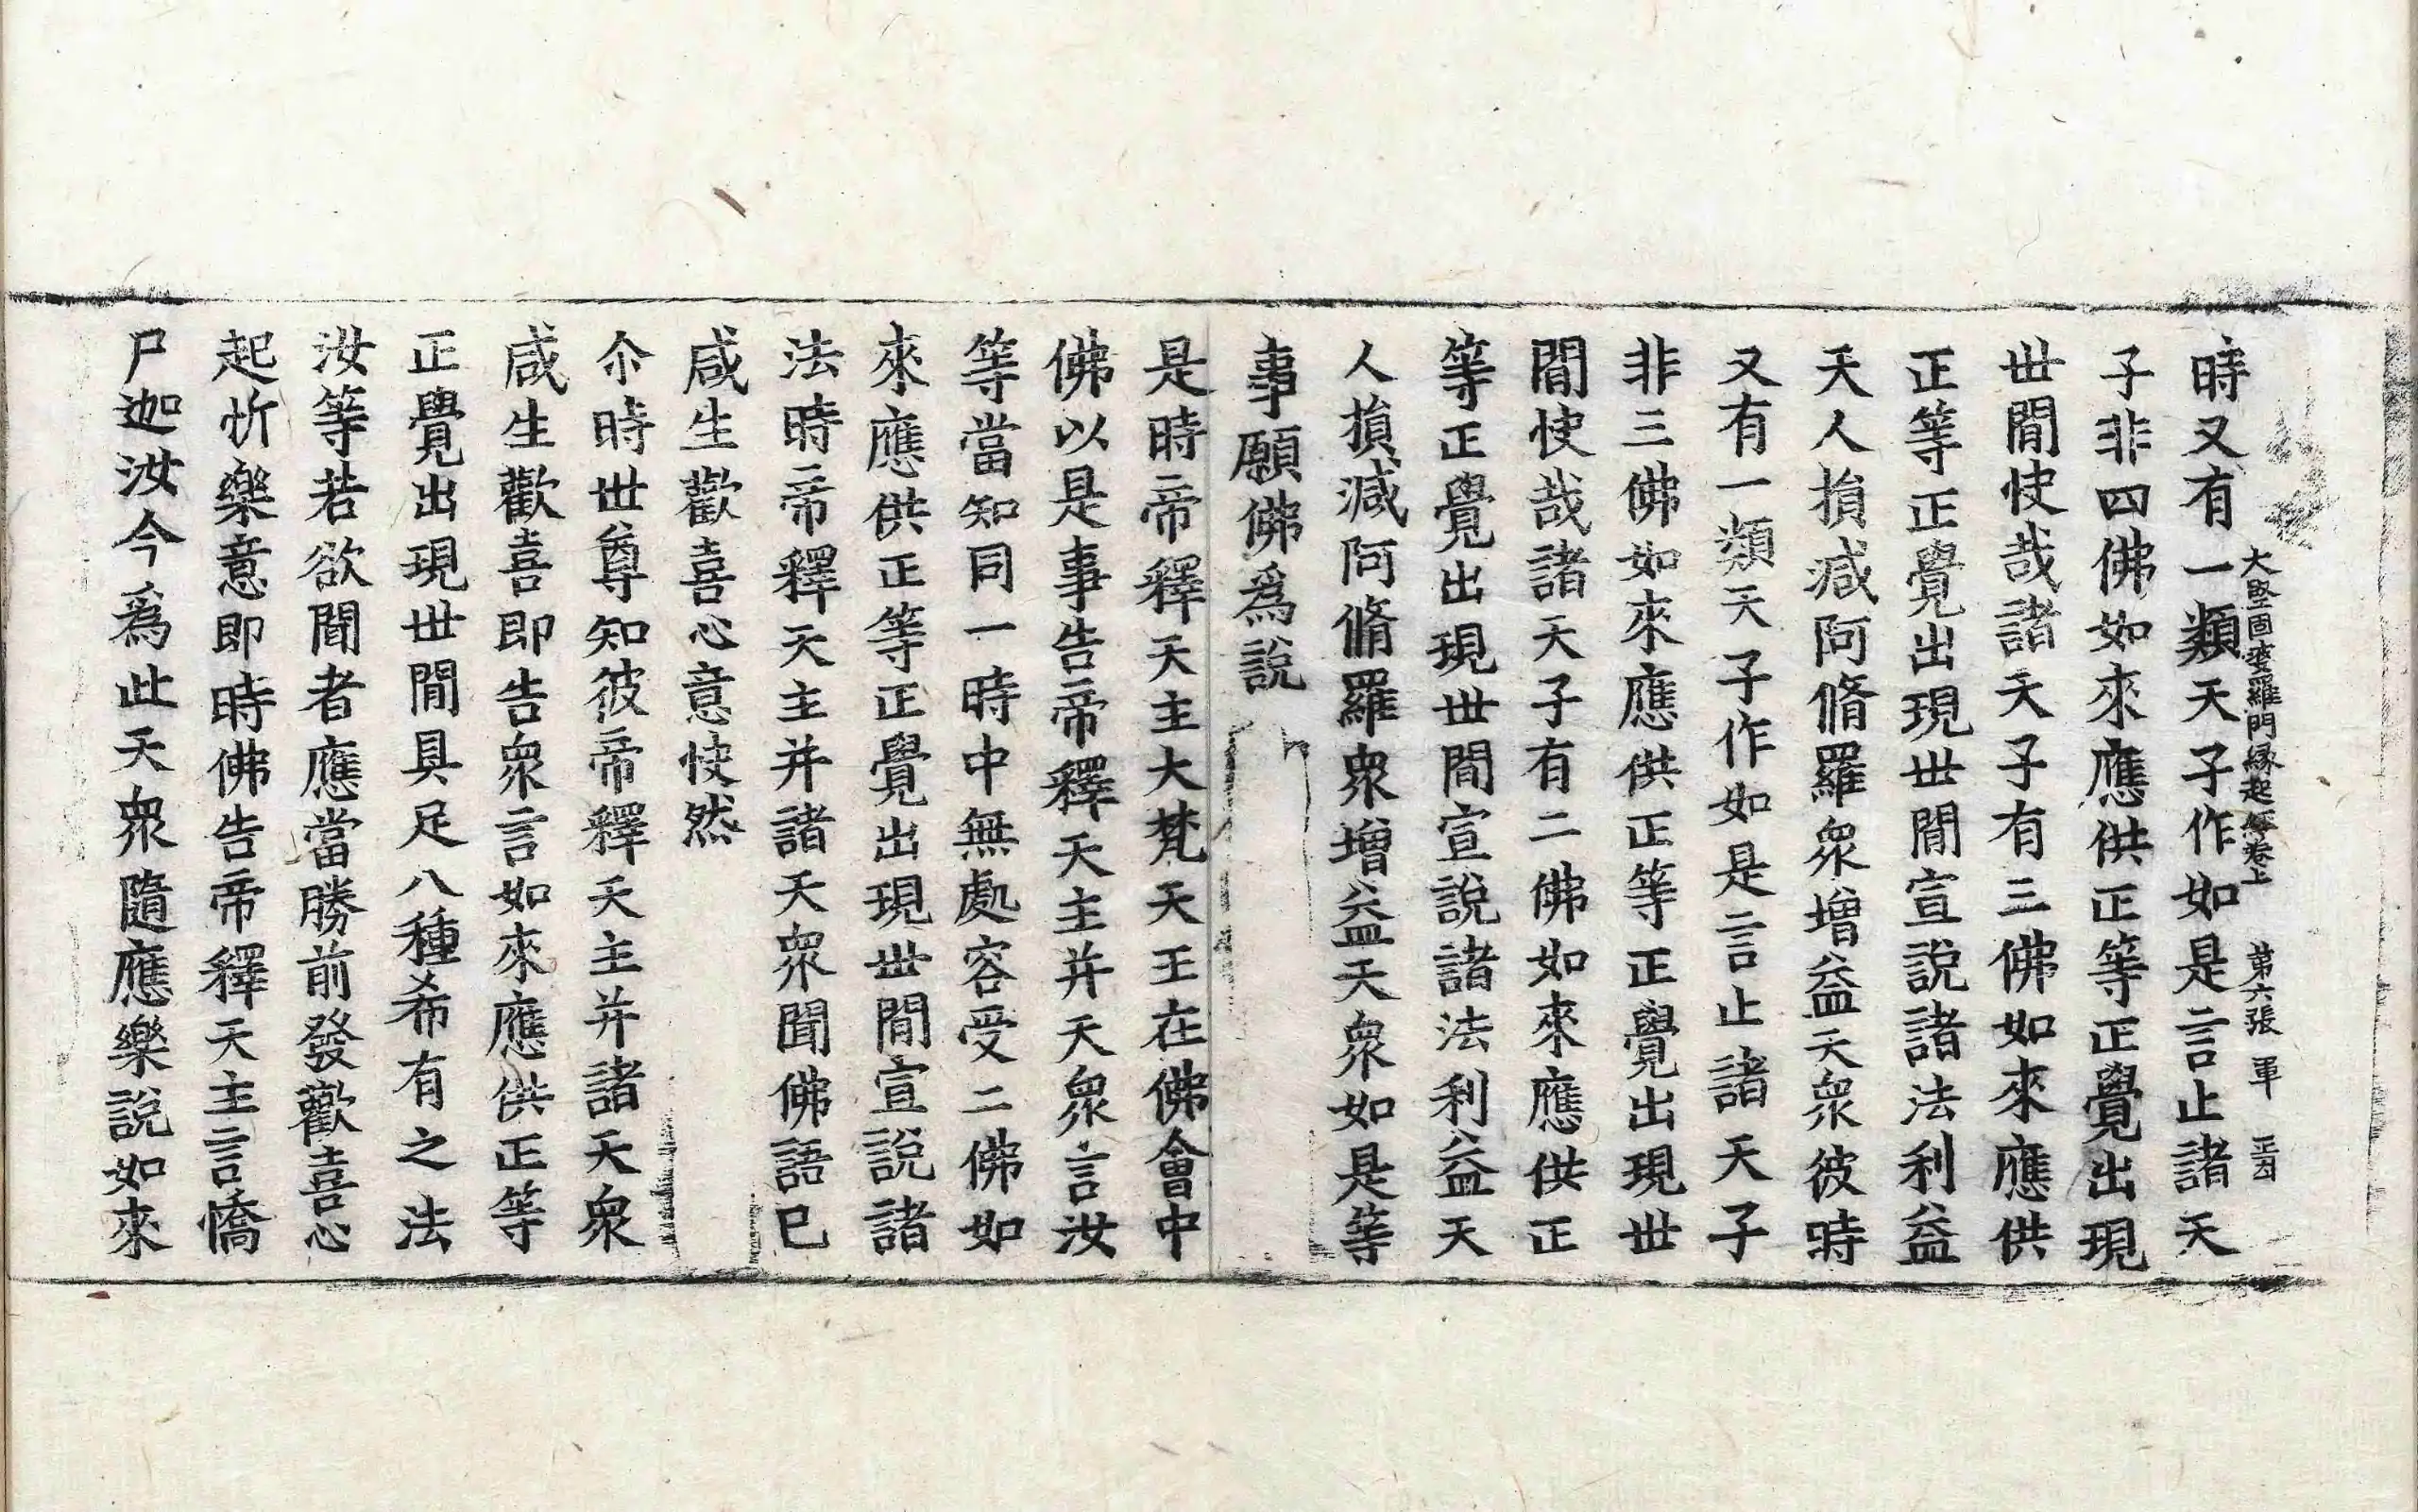 大堅固婆羅門緣起經卷上 第六張 軍
時又有一類天子作如是言止諸天
子非四佛如來應供正等正覺出現
世閒快哉諸天子有三佛如來應供
正等正覺出現世閒宣說諸法利益
天人損減阿脩羅衆增益天衆彼時
又有一類天子作如是言止諸天子
非三佛如來應供正等正覺出現世
閒快哉諸天子有二佛如來應供正
等正覺出現世閒宣說諸法利益天
人損減阿脩羅衆增益天衆如是等
事願佛爲說
是時帝釋天主大梵天王在佛會中
佛以是事告帝釋天主并天衆言汝
等當知同一時中無處容受二佛如
來應供正等正覺出現世閒宣說諸
法時帝釋天主并諸天衆聞佛語已
咸生歡喜心意快然
尒時世尊知彼帝釋天主并諸天衆
咸生歡喜即告衆言如來應供正等
正覺出現世閒具足八種希有之法
汝等若欲聞者應當勝前發歡喜心
起忻樂意即時佛告帝釋天主言憍
尸迦汝今爲此天衆隨應樂說如來